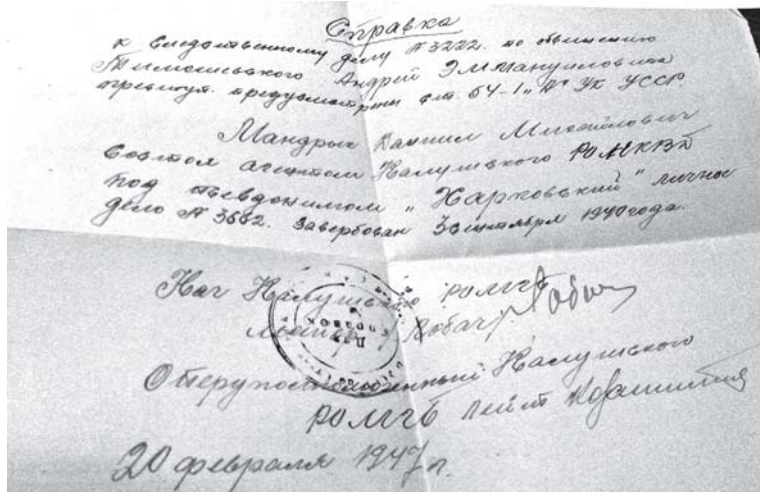 Справка
к Следственному делу № 3222. по обвинению
Андрей Эммануиловича
преступ. предусмотрены ст. 54-1 „А" УК УССР
Мандрык Даниил Михайлович
состоял агентом Калушского РОНКВД
под псевдонимом „Харковский" личное
дело № 3682. Завербован 1940 года.
Нач Калушского РОМГБ
майор
Оперуполномоченный Калушского
РОМГБ лейт
20 февраля 1947 г.